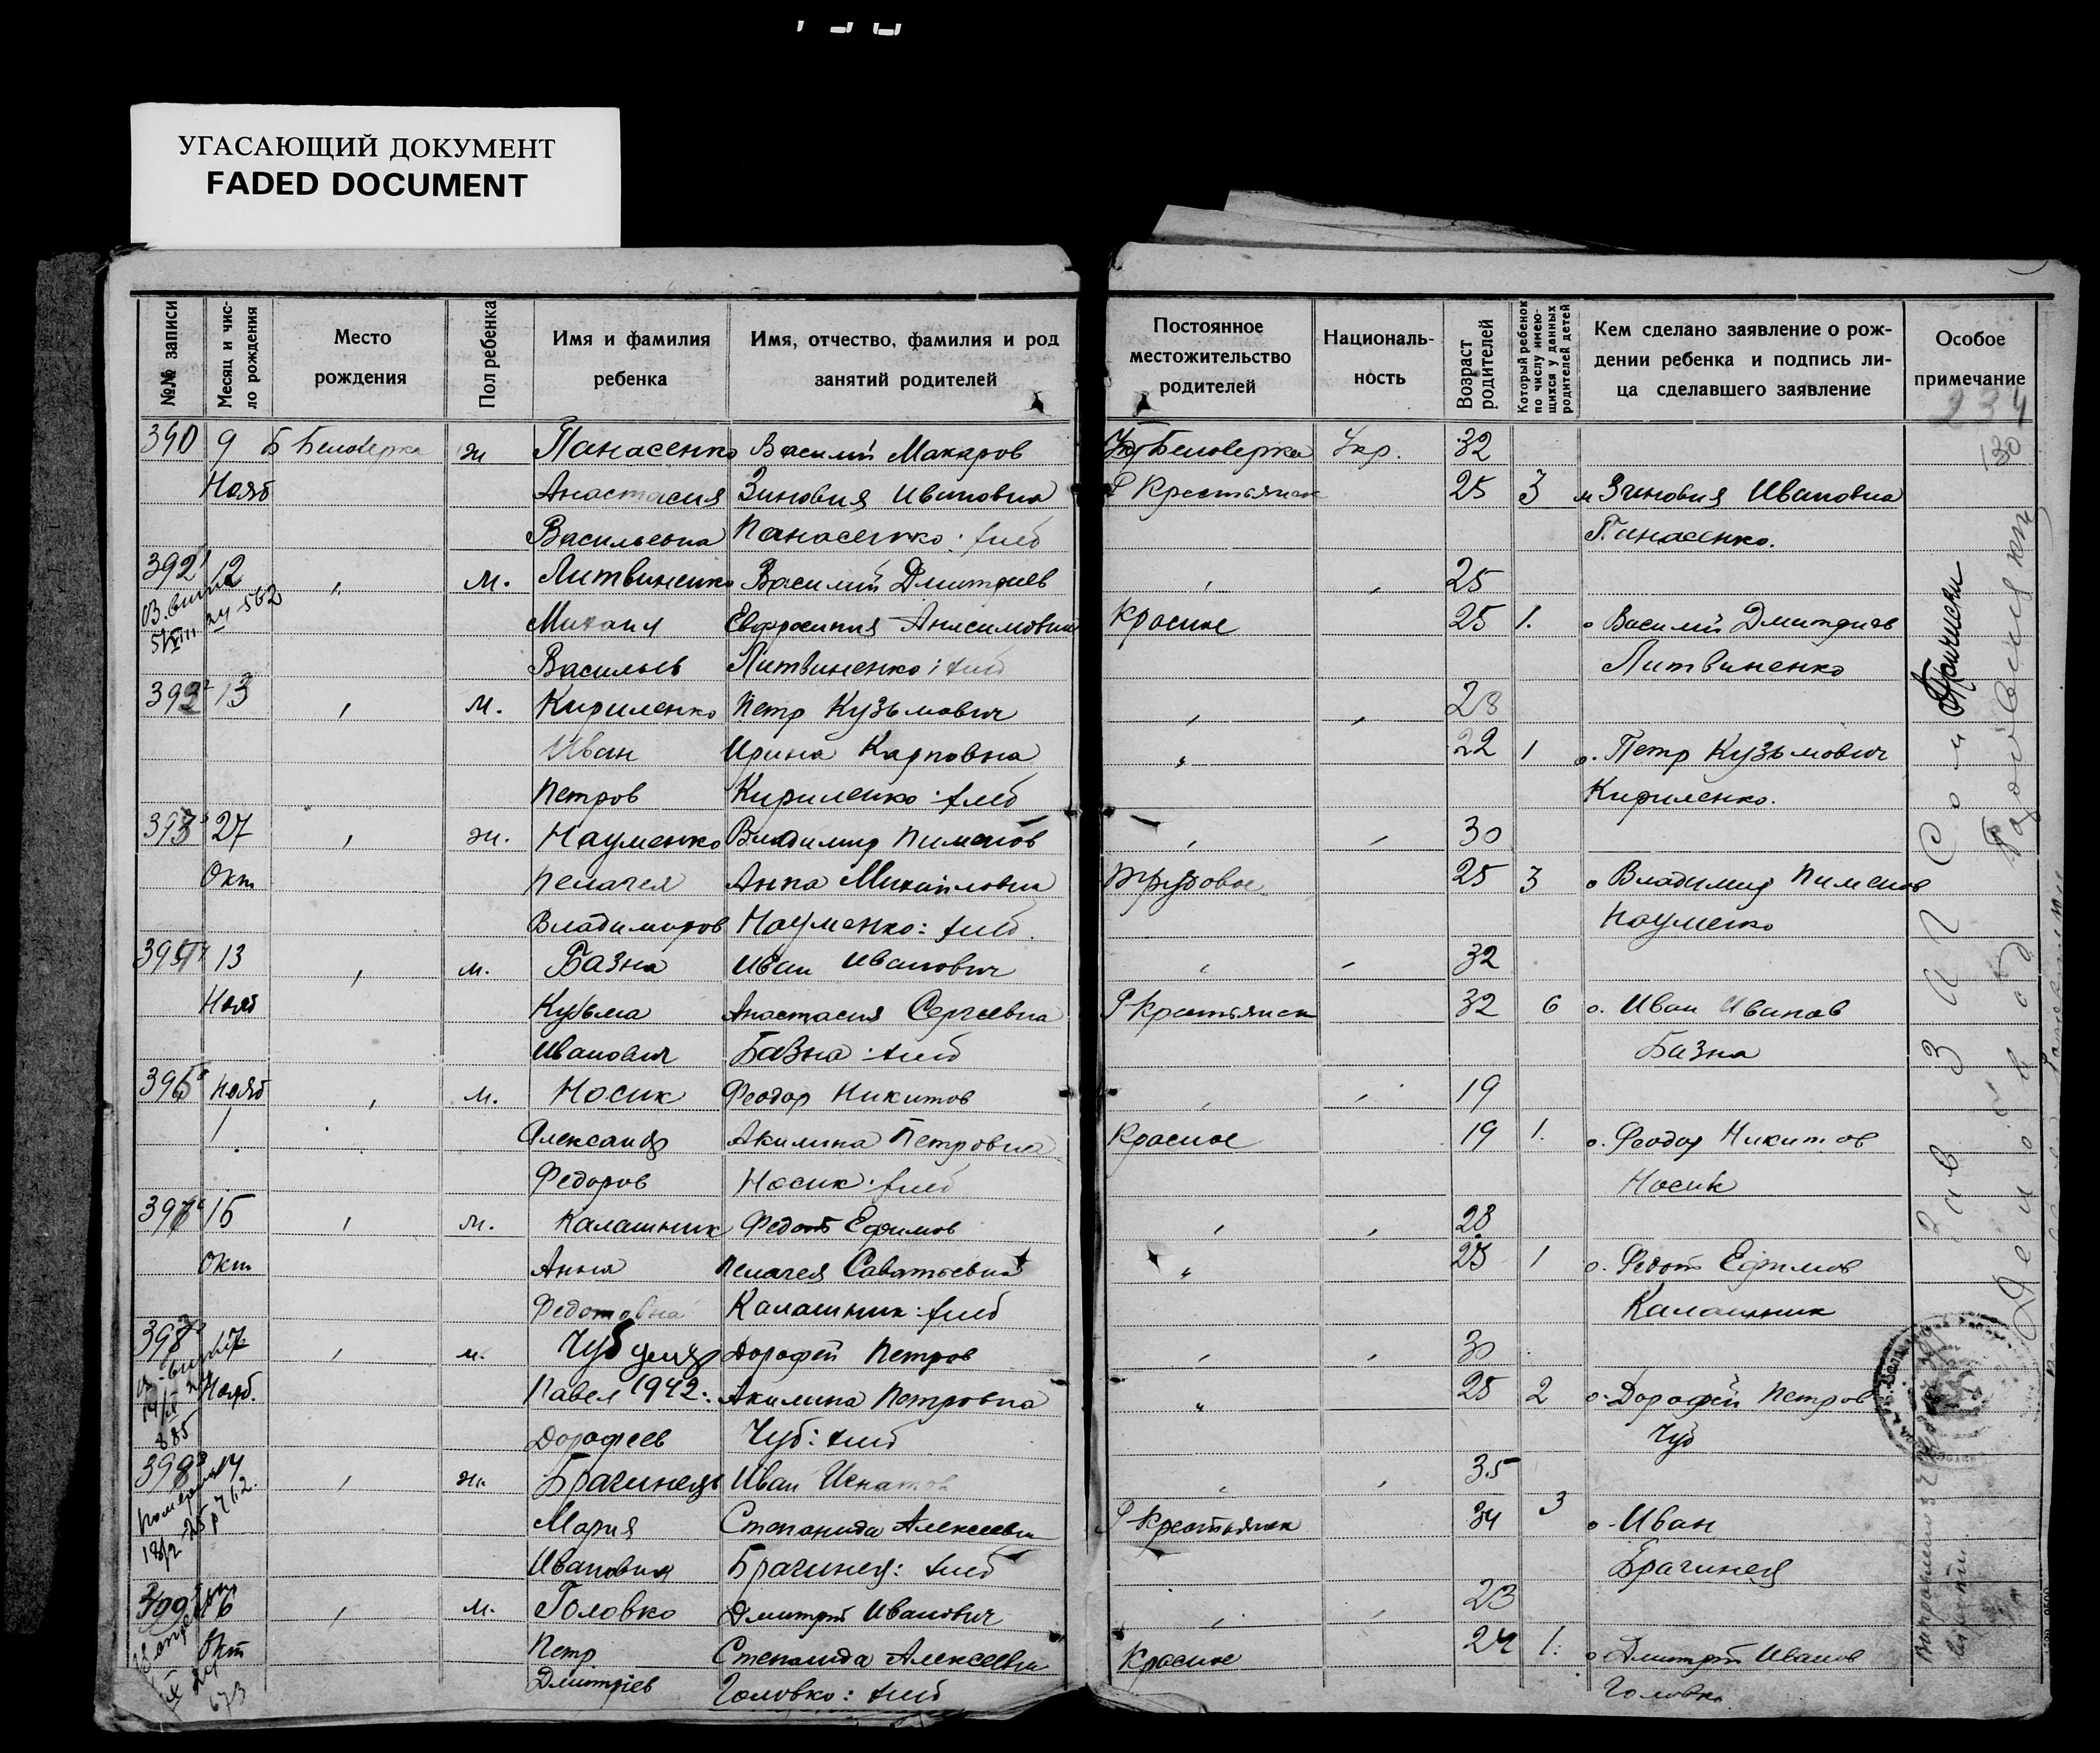 УГАСАЮЩИЙ ДОКУМЕНТ
FADED DOCUMENT
№№ записи
Месяц и чис-
ло рождения
Место
рождения
Пол ребенка
Имя и фамилия
ребенка
Имя, отчество, фамилия и род
занятий родителей
Постоянное
местожительство
родителей
Националь-
ность
Возраст
родителей
Который ребенок
по числу имею-
щихся у данных
родителей детей
Кем сделано заявление о рож-
дении ребенка и подпись ли-
ца сделавшего заявление
Особое
примечание
234
130
390 9 Б Белозерка ж Панасенко Василий Макаров Белозерка Укр. 32
Нояб Анастасия Зиновия Ивановна Р Крестьянск 25 3 м Зиновия Ивановна
Васильевна Панасенко: хлеб Панасенко.
392 12 м. Литвиненко Василий Дмитриев 25
Михаил Евфросиния Анисимовна Красное 25 1. о Василий Дмитриев
Васильев Литвиненко: хлеб Литвиненко
393 13 м. Кириленко Петр Кузьмович 28
Иван Ирина Карповна 22 1 о. Петр Кузьмович
Петров Кириленко: хлеб Кириленко.
27 ж. Науменко Владимир Пименов 30
Окт Пелагея Анна Михайловна Трудовое 25 3 о Владимир Пименов
Владимиров Науменко: хлеб. Науменко
13 м. Базна Иван Иванович 32
Нояб Кузьма Анастасия Сергеевна Р Крестьянск 32 6 о. Иван Иванов
Иванович Базна: хлеб Базна
396 Нояб м. Носик Феодор Никитов 19
1 Александр Акилина Петровна Красное 19 1. о. Феодор Никитов
Федоров Носик: хлеб Носик
397 15 м. Калашник Федот Ефимов 28
Окт Анна Пелагея Саватьевна 23 1 о. Федот Ефимов
Федотовна Калашник: хлеб Калашник
398 17 м. Чуб умер Дорофей Петров 30
Нояб. Павел 1942: Акилина Петровна 25 2 о. Дорофей Петров
885 Дорофеев Чуб: хлеб Чуб
14 ж. Брагинец Иван Игнатов 35
Мария Степанида Алексеевна Р Крестьянск 34 3 о. Иван
Ивановна Брагинец: хлеб Брагинец
16 м. Головко Дмитрий Иванович 23
Окт Петр Степанида Алексеевна Красное 24 1. о Дмитрий Иванов
673 Дмитриев Головко: хлеб Головко
Зав ЗАГСом